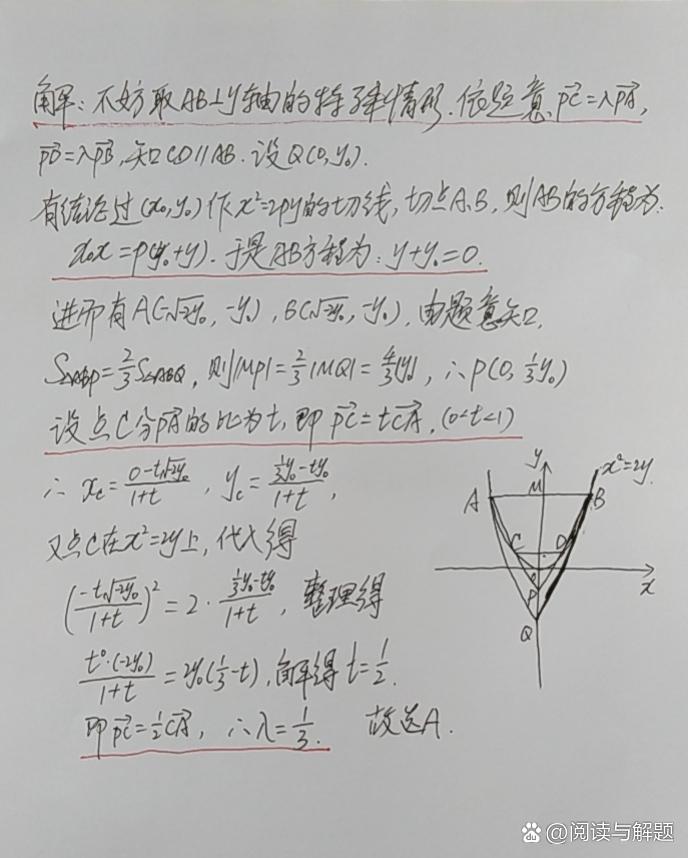 解:不妨取AB⊥y轴的特殊情形.依题意,PC=λPA,
PD=λPB,知CD∥AB.设Q(0,y₀).
有结论过(x₀,y₀)作x²=2py的切线,切点A、B,则AB的方程为:
x₀x=p(y₀+y).于是AB方程为:y+y₀=0.
进而有A(-√-2y₀,-y₀),B(√-2y₀,-y₀),由题意知,
S△ABP=2/3S△ABQ,则|MP|=2/3|MQ|=4/3|y₀|,∴P(0,1/3y₀)
设点C分PA的比为t,即PC=tCA,(0<t<1)
∴x_c=(0-t√-2y₀)/(1+t),y_c=(1/3y₀-ty₀)/(1+t),
又点C在x²=2y上,代入得
((-t√-2y₀)/(1+t))²=2·(1/3y₀-ty₀)/(1+t),整理得
(t²·(-2y₀))/(1+t)=2y₀(1/3-t),解得t=1/2.
即PC=1/2CA,∴λ=1/3. 故选A.
y
x²=2y
A
M
B
C
D
x
P
Q
@阅读与解题